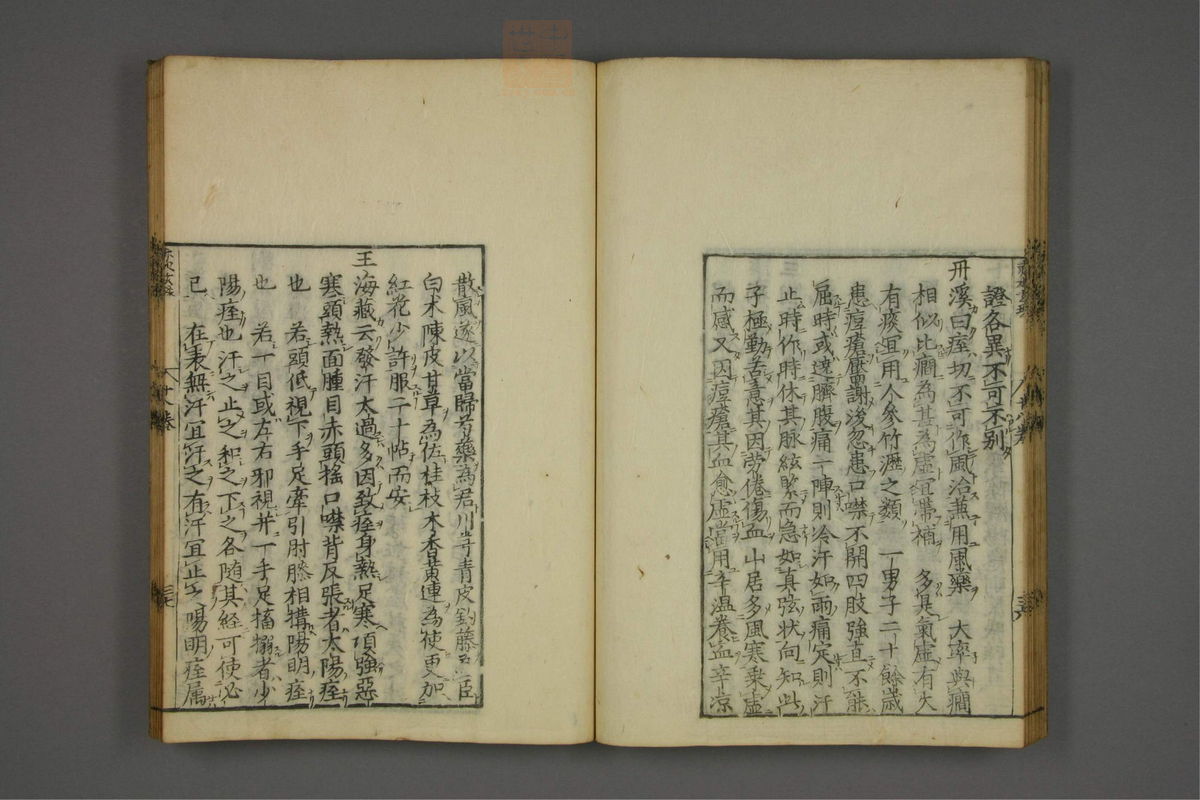 證各異不可不别
丹溪曰痓切不可作風治蕪用風藥　大率與癎
相似比癎為甚為虚宜帯補　多是氣虚有火
有痰宜用人參竹瀝之類　一男子二十餘歳
患痘瘡靨謝後忽患口噤不開四肢強直不能
屈時或遶臍腹痛一陣則冷汗如雨痛定則汗
止時作時休其脉絃緊而急如真弦状向知此
子極勤苦意其因労倦傷血山居多風寒乗虚
而感又因痘瘡其血愈虚當用辛温養血辛凉
散風遂以當歸芍藥為君川芎青皮釣藤為臣
白朮陳皮甘草為佐桂枝木香黄連為使更加
紅花少許服二十帖而安
王海藏云發汗太過多因致痓身熱足寒項強惡
寒頭熱面腫目赤頭揺口噤背反張者太陽痓
也　若頭低視下手足牽引肘膝相搆陽明痓
也　若一目或左右邪視并一手足搐搦者少
陽痓也汗之止之和之下之各随其經可使必
已　在表無汗宜汗之有汗宜止之陽明痓属